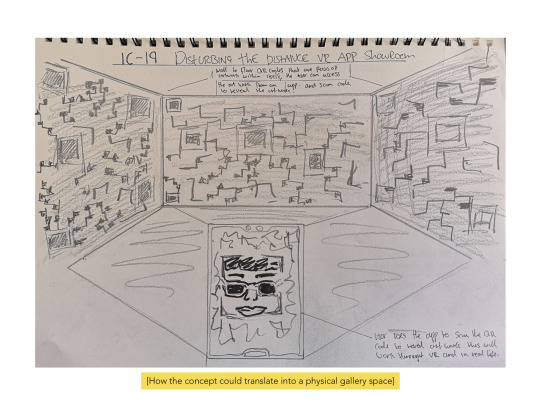 IC-19 DISTURBING THE DISTANCE VR APP Showroom
wall to floor QR codes that are pieces of
artworks within itself, the user can access
the art work from an app and scan code
to reveal the artwork
user uses the app to scan the QR
Code to reveal art work this will
work through VR and in real life.
[How the concept could translate into a physical gallery space]